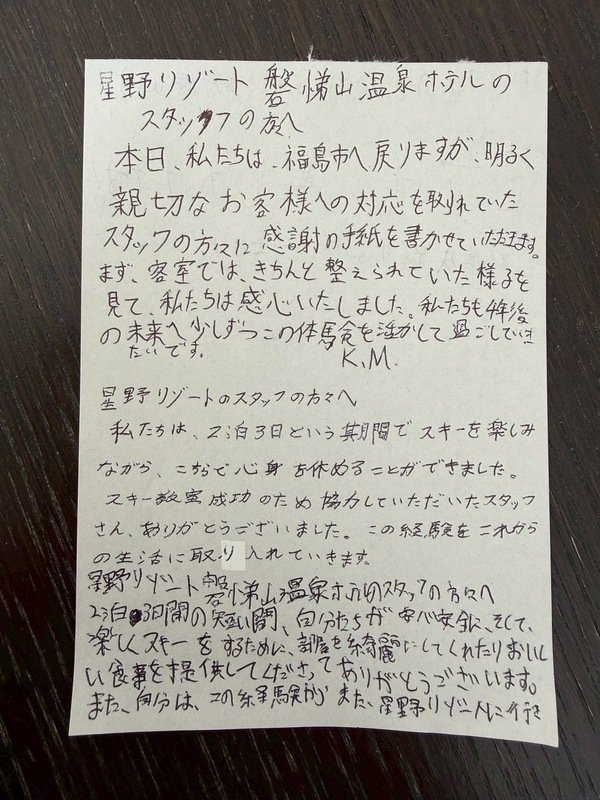 星野リゾート 磐梯山温泉ホテルの
スタッフの方々へ
本日、私たちは、福島市へ戻りますが、明るく
親切なお客様への対応を取られていた
スタッフの方々に感謝の手紙を書かせていただきます。
まず、客室では、きちんと整えられていた様子を
見て、私たちは感心いたしました。私たちも4年後
の未来へ少しずつこの体験を活かして過ごしていき
たいです。
K.M.
星野リゾートのスタッフの方々へ
私たちは、2泊3日という期間でスキーを楽しみ
ながら、こちらで心身を休めることができました。
スキー教室成功のため協力していただいたスタッフ
さん、ありがとうございました。この経験をこれから
の生活に取り入れていきます。
星野リゾート磐梯山温泉ホテルのスタッフの方々へ
2泊3日間の短い間、自分たちが安心安全に、そして、
楽しくスキーをするために、部屋を綺麗にしてくれたりおいし
い食事を提供してくださってありがとうございます。
また、自分は、この経験からまた、星野リゾートに行き